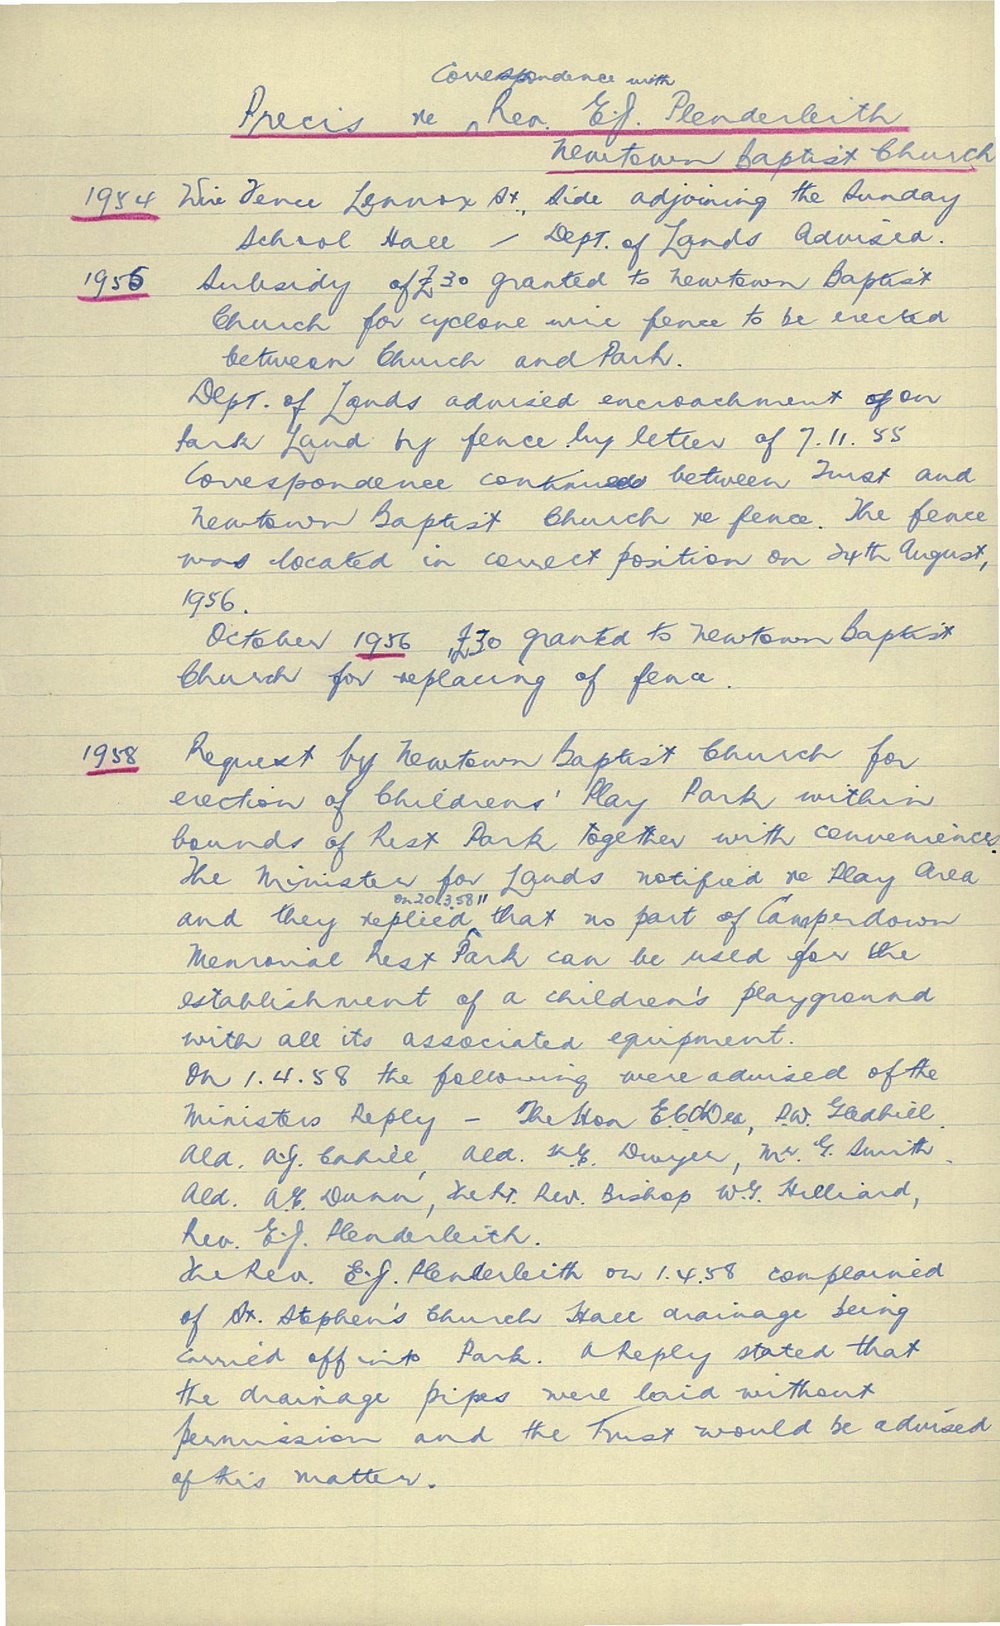 Correspondence with
Precis re Rev. E.J. Plenderleith
Newtown Baptist Church
1954 Wire Fence Lennox St., Side adjoining the Sunday
School Hall - Dept. of Lands Advised.
1955 Subsidy of £30 granted to Newtown Baptist
Church for cyclone wire fence to be erected
between Church and Park.
Dept. of Lands advised encroachment of on
Park Land by fence by letter of 7.11.55
Correspondence continued between Trust and
Newtown Baptist Church re fence. The fence
was located in correct position on 24th August,
1956.
October 1956 £30 granted to Newtown Baptist
Church for replacing of fence.
1958 Request by Newtown Baptist Church for
erection of Childrens' Play Park within
bounds of Rest Park together with conveniences.
The Minister for Lands notified re Play Area
on 20.3.58"
and they replied that no part of Camperdown
Memorial Rest Park can be used for the
establishment of a children's playground
with all its associated equipment.
On 1.4.58 the following were advised of the
Ministers Reply - The Hon E.C. O'Dea, P.W. Gledhill.
Ald. A.J. Cahill, Ald. Dwyer, Mr. G. Smith.
Ald. A.E. Dunn, The Rt. Rev. Bishop W.G. Hilliard,
Rev. E.J. Plenderleith.
The Rev. E.J. Plenderleith on 1.4.58 complained
of St. Stephen's Church Hall drainage being
carried off into Park. A Reply stated that
the drainage pipes were laid without
permission and the Trust would be advised
of this matter.